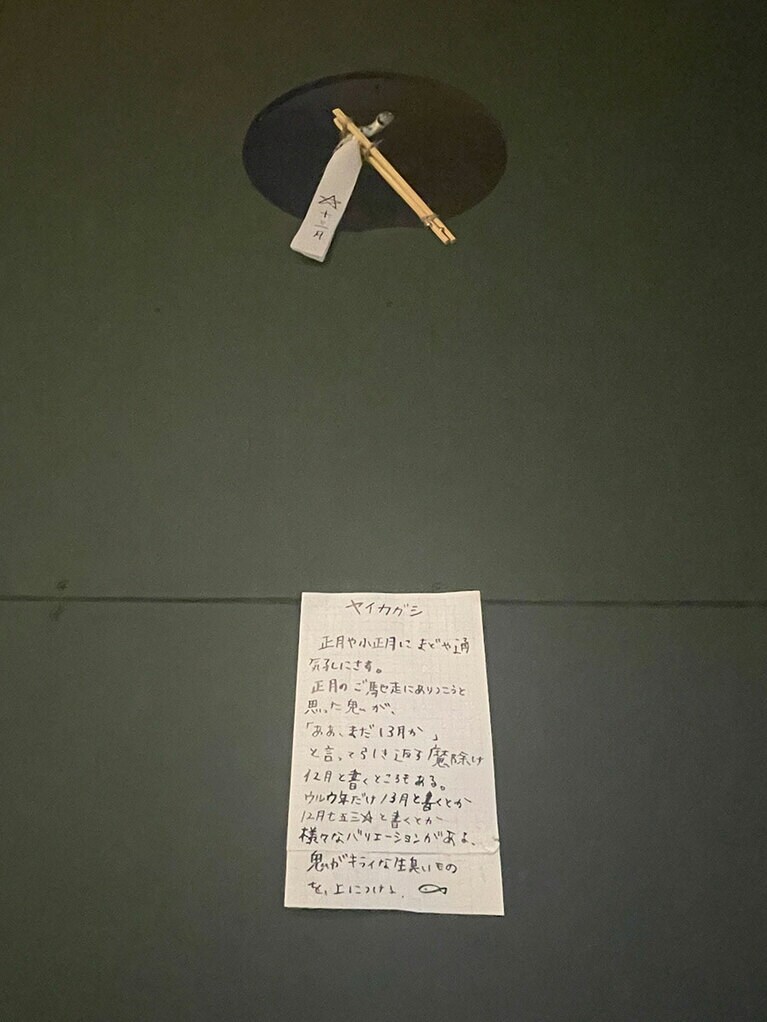 ☆十三月
ヤイカガシ
正月や小正月にまどや通
気孔にさす。
正月のご馳走にありつこうと
思った鬼が、
「ああ、まだ13月か」
と言って引き返す魔除け
12月と書くところもある。
ウルウ年だけ13月と書くとか
12月七五三☆と書くとか
様々なバリエーションがある、
鬼がキライな生臭いもの
を、上につける.